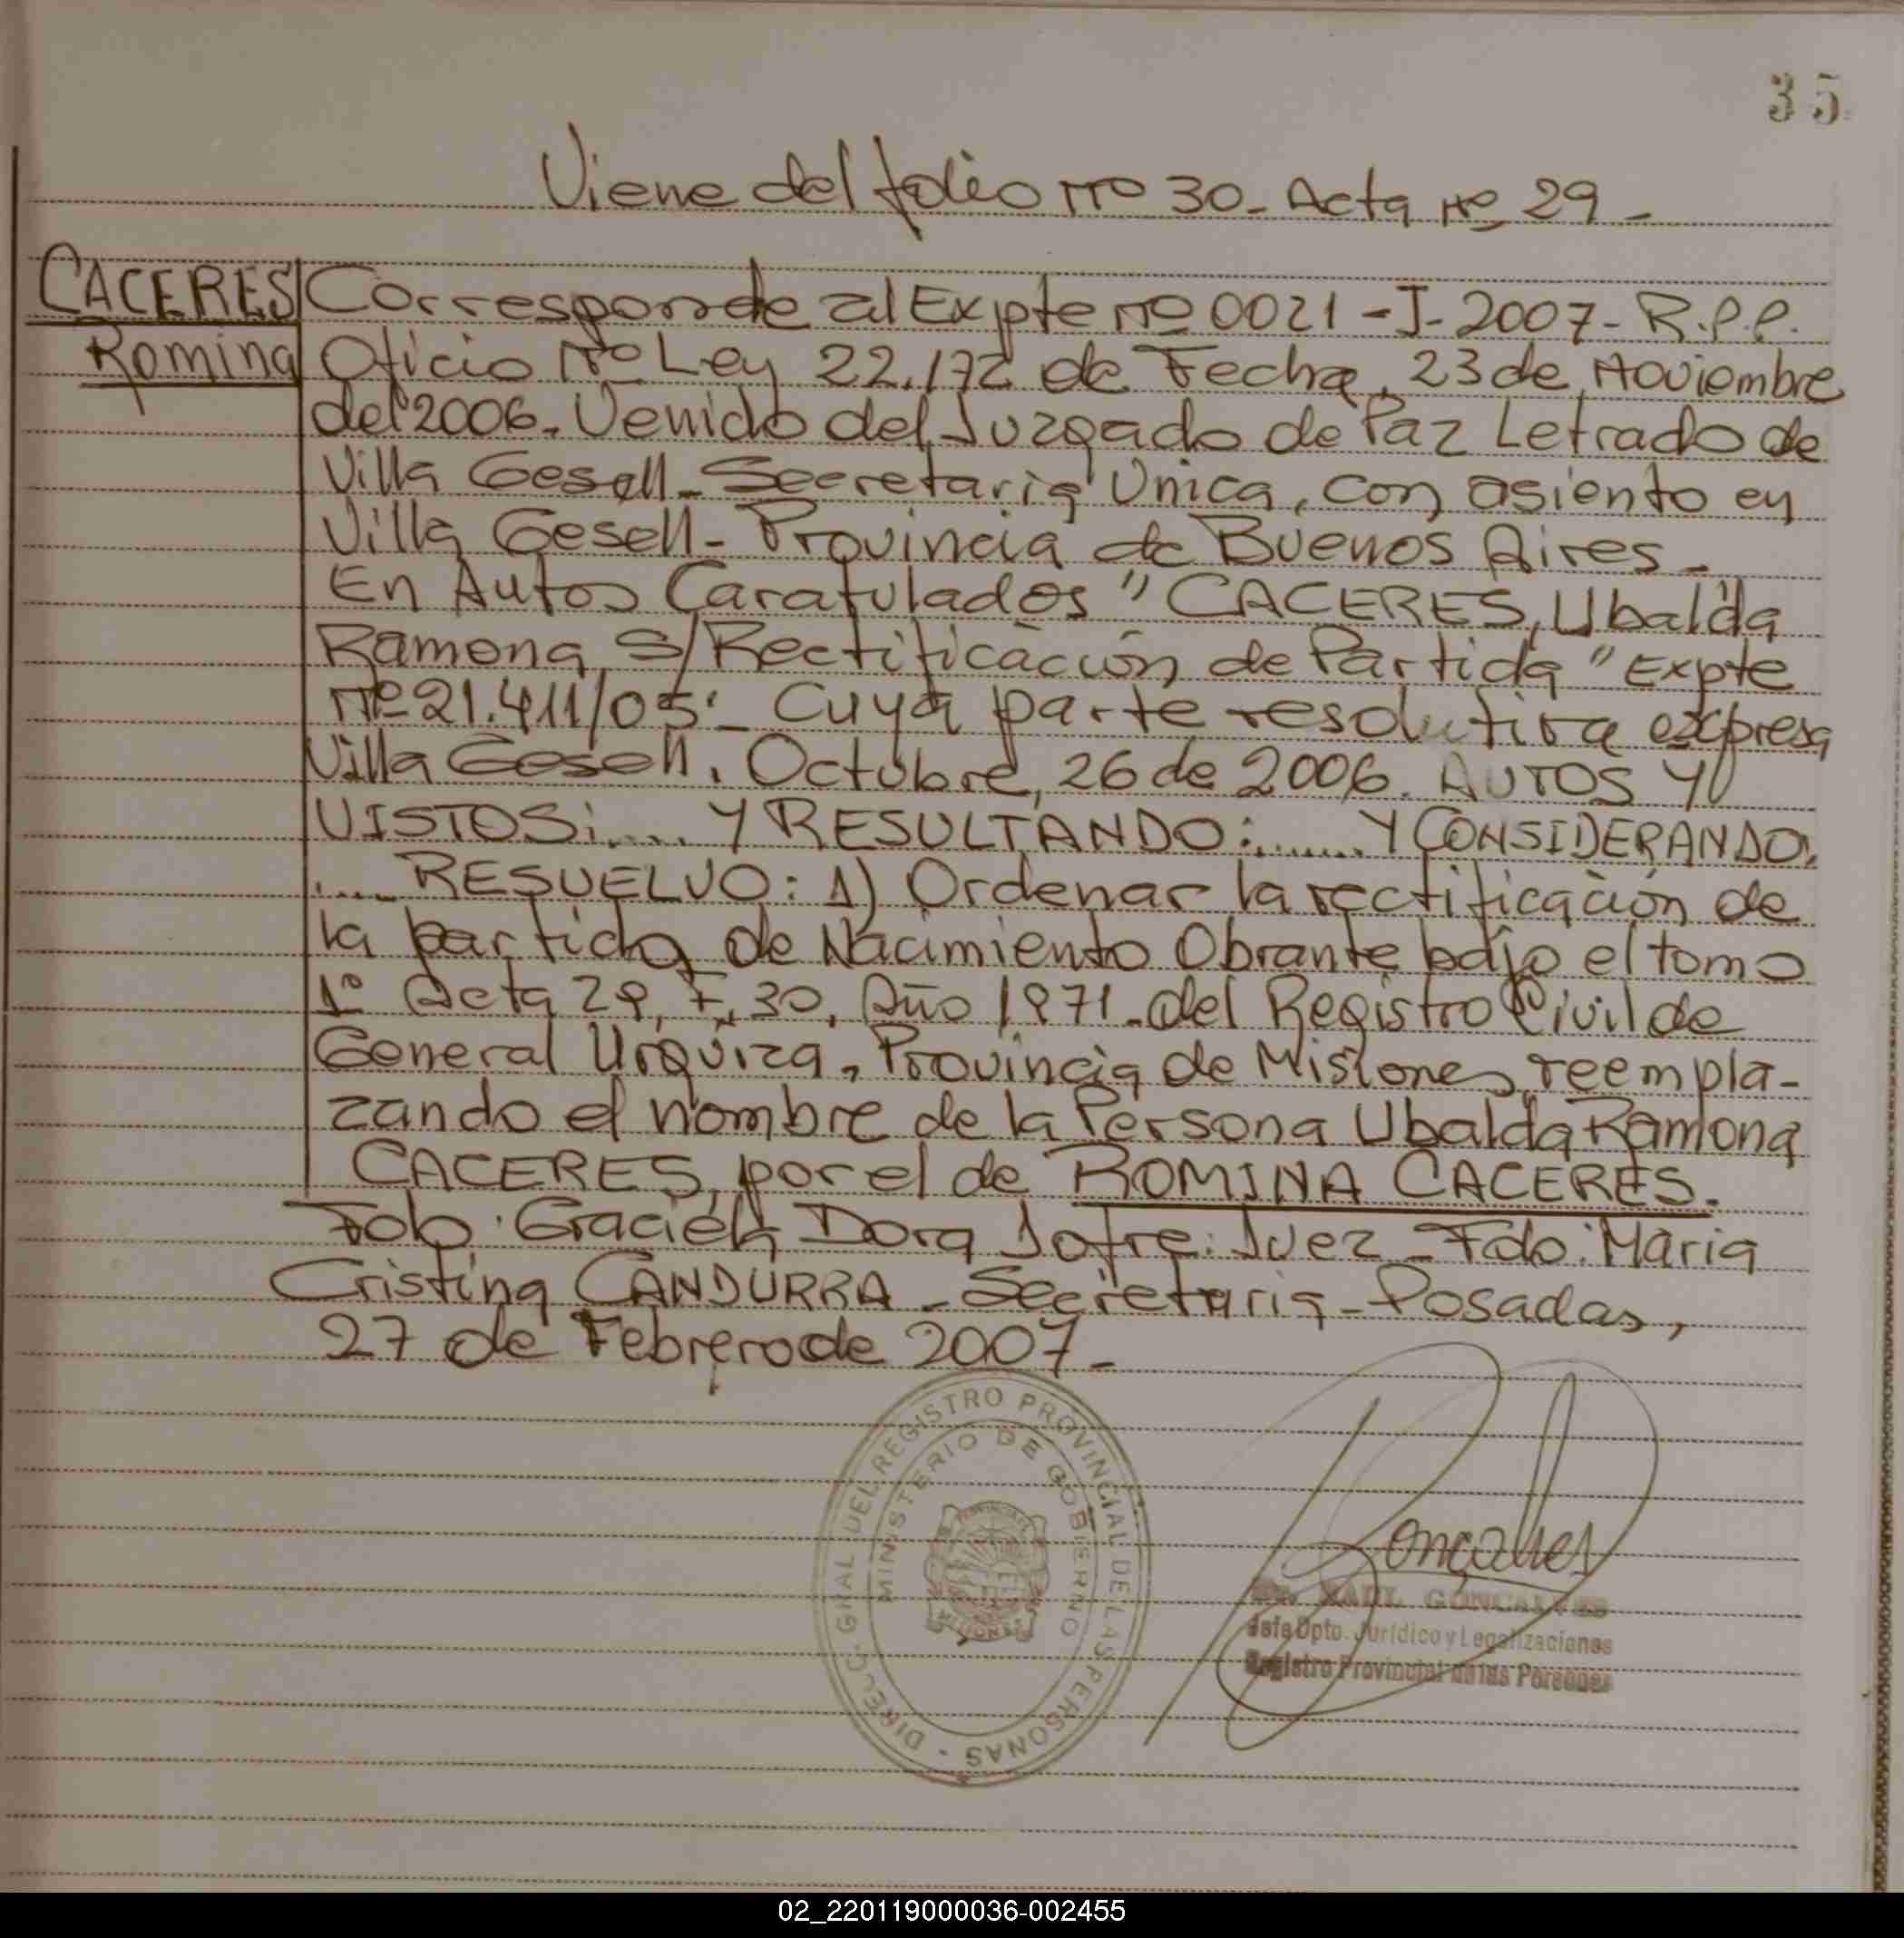 35
Viene del folio nº 30 - Acta nº 29 -
CACERES
Romina
Corresponde al Expte nº 0021 - J - 2007 - R.P.P.
Oficio Nº Ley 22.172 de Fecha, 23 de Noviembre
del 2006. Venido del Juzgado de Paz Letrado de
Villa Gesell - Secretaria Unica, con asiento en
Villa Gesell - Provincia de Buenos Aires -
En Autos Caratulados "CACERES, Ubalda
Ramona S/ Rectificación de Partida" Expte
Nº 21.411/05: - Cuya parte resolutiva expresa
Villa Gesell, Octubre, 26 de 2006. AUTOS Y
VISTOS: .... Y RESULTANDO: ....... Y CONSIDERANDO:
..... RESUELVO: 1) Ordenar la rectificación de
la partida de Nacimiento Obrante bajo el tomo
1º Acta 29, F. 30, Año 1971 - del Registro Civil de
General Urquiza, Provincia de Misiones, reempla-
zando el nombre de la Persona Ubalda Ramona
CACERES, por el de ROMINA CACERES.
Fdo. Graciela Dora Jofre: Juez - Fdo: Maria
Cristina CANDURRA - Secretaria - Posadas,
27 de Febrero de 2007 -
DIREC. GRAL DEL REGISTRO PROVINCIAL DE LAS PERSONAS -
MINISTERIO DE GOBIERNO
MISIONES
Gonçalves
RAUL GONCALVES
Jefe Dpto. Jurídico y Legalizaciones
Registro Provincial de las Personas
02_220119000036-002455